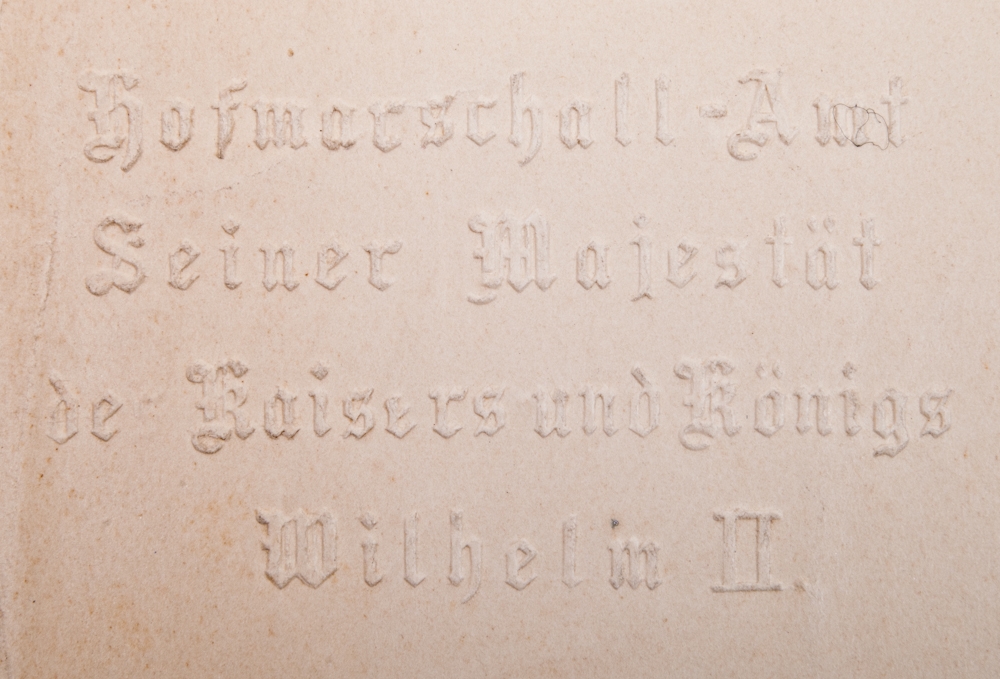 Hofmarschall-Amt
Seiner Majestät
de Kaisers und Königs
Wilhelm II.